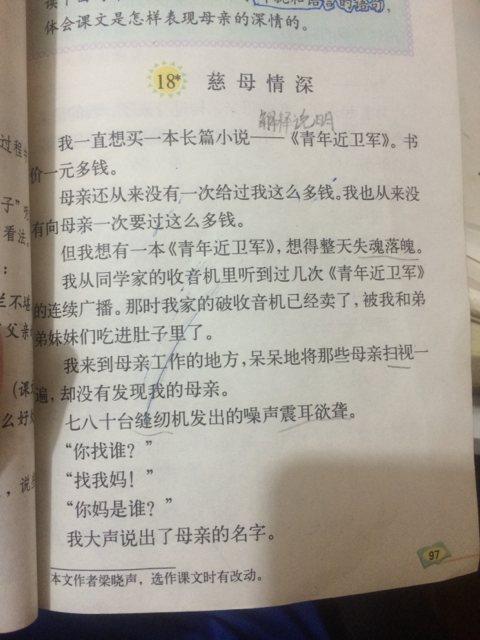 体会课文是怎样表现母亲的深情的。
18* 慈母情深
解释说明
我一直想买一本长篇小说——《青年近卫军》。书
价一元多钱。
母亲还从来没有一次给过我这么多钱。我也从来没
有向母亲一次要过这么多钱。
但我想有一本《青年近卫军》，想得整天失魂落魄。
我从同学家的收音机里听到过几次《青年近卫军》
的连续广播。那时我家的破收音机已经卖了，被我和弟
弟妹妹们吃进肚子里了。
我来到母亲工作的地方，呆呆地将那些母亲扫视一
遍，却没有发现我的母亲。
七八十台缝纫机发出的噪声震耳欲聋。
“你找谁？”
“找我妈！”
“你妈是谁？”
我大声说出了母亲的名字。
本文作者梁晓声，选作课文时有改动。
97
过程
子”
看法
父亲
（课
么好
，说